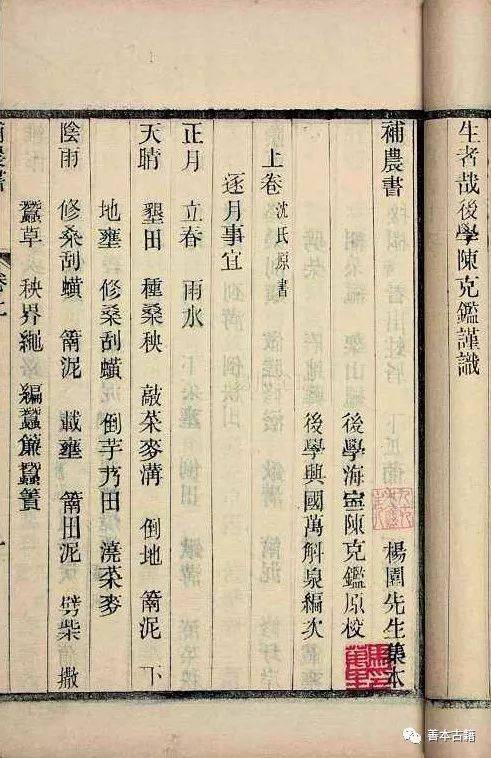 生者哉後學陳克鑑謹識
補農書
楊園先生集本
後學海寧陳克鑑原校
後學興國萬斛泉編次
上卷 沈氏原書
逐月事宜
正月 立春 雨水
天晴 墾田 種桑秧 敲菜麥溝 倒地 罱泥 下
地壅 修桑刮蟥 倒芋艿田 澆菜麥
陰雨 修桑刮蟥 罱泥 載壅 罱田泥 劈柴 撒
蠶草 秧界繩 編蠶簾蠶簀
補農書
卷上
一
善本古籍